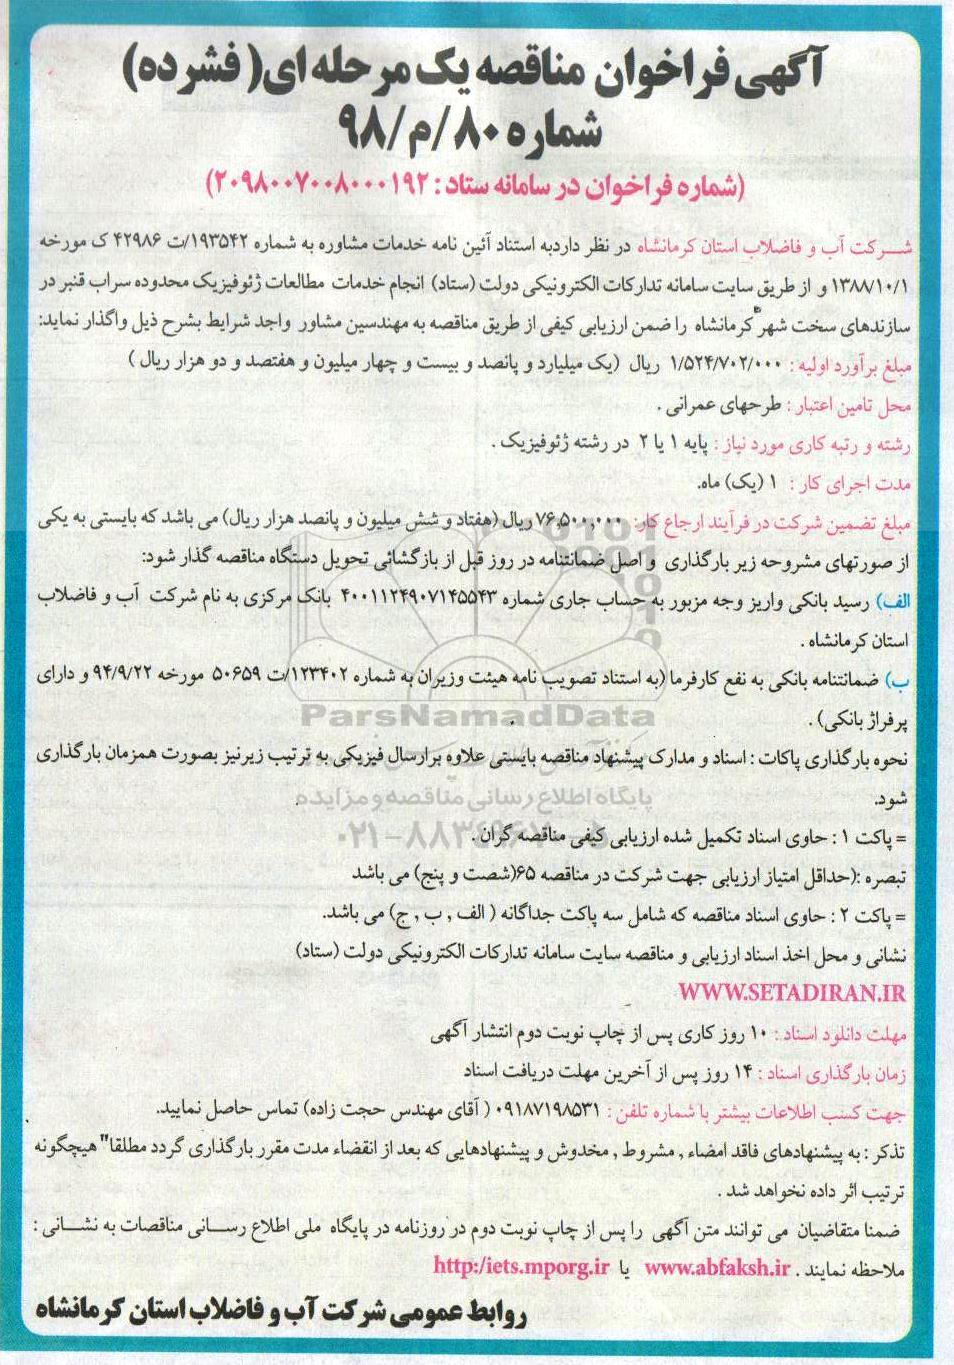 آگهی فراخوان مناقصه یک مرحله ای( فشرده)
شماره ۸۰/م/۹۸
(شماره فراخوان در سامانه ستاد : ۲۰۹۸۰۰۷۰۰۸۰۰۰۱۹۲)
شرکت آب و فاضلاب استان کرمانشاه در نظر داردبه استناد آئین نامه خدمات مشاوره به شماره ۱۹۳۵۴۲/ت ۴۲۹۸۶ ک مورخه
۱۳۸۸/۱۰/۱ و از طریق سایت سامانه تدارکات الکترونیکی دولت (ستاد) انجام خدمات مطالعات ژئوفیزیک محدوده سراب قنبر در
سازندهای سخت شهر کرمانشاه را ضمن ارزیابی کیفی از طریق مناقصه به مهندسین مشاور واجد شرایط بشرح ذیل واگذار نماید:
مبلغ برآورد اولیه : ۱/۵۲۴/۷۰۲/۰۰۰ ریال (یک میلیارد و پانصد و بیست و چهار میلیون و هفتصد و دو هزار ریال )
محل تامین اعتبار : طرحهای عمرانی .
رشته و رتبه کاری مورد نیاز : پایه ۱ یا ۲ در رشته ژئوفیزیک .
مدت اجرای کار : ۱ (یک) ماه.
مبلغ تضمین شرکت در فرآیند ارجاع کار: ۷۶,۵۰۰,۰۰۰ ریال (هفتاد و شش میلیون و پانصد هزار ریال) می باشد که بایستی به یکی
از صورتهای مشروحه زیر بارگذاری و اصل ضمانتنامه در روز قبل از بازگشائی تحویل دستگاه مناقصه گذار شود:
الف) رسید بانکی واریز وجه مزبور به حساب جاری شماره ۴۰۰۱۱۲۴۹۰۷۱۴۵۵۴۳ بانک مرکزی به نام شرکت آب و فاضلاب
استان کرمانشاه .
ب) ضمانتنامه بانکی به نفع کارفرما (به استناد تصویب نامه هیئت وزیران به شماره ۱۲۳۴۰۲/ت ۵۰۶۵۹ مورخه ۹۴/۹/۲۲ و دارای
پرفراژ بانکی) .
ParsNamadData
نحوه بارگذاری پاکات : اسناد و مدارک پیشنهاد مناقصه بایستی علاوه برارسال فیزیکی به ترتیب زیرنیز بصورت همزمان بارگذاری
شود.
پایگاه اطلاع رسانی مناقصه و مزایده
= پاکت ۱ : حاوی اسناد تکمیل شده ارزیابی کیفی مناقصه گران .
تبصره :(حداقل امتیاز ارزیابی جهت شرکت در مناقصه ۶۵(شصت و پنج) می باشد
= پاکت ۲ : حاوی اسناد مناقصه که شامل سه پاکت جداگانه ( الف , ب , ج) می باشد.
نشانی و محل اخذ اسناد ارزیابی و مناقصه سایت سامانه تدارکات الکترونیکی دولت (ستاد)
WWW.SETADIRAN.IR
مهلت دانلود اسناد : ۱۰ روز کاری پس از چاپ نوبت دوم انتشار آگهی
زمان بارگذاری اسناد : ۱۴ روز پس از آخرین مهلت دریافت اسناد
جهت کسب اطلاعات بیشتر با شماره تلفن : ۰۹۱۸۷۱۹۸۵۳۱ ( آقای مهندس حجت زاده) تماس حاصل نمایید.
تذکر : به پیشنهادهای فاقد امضاء , مشروط , مخدوش و پیشنهادهایی که بعد از انقضاء مدت مقرر بارگذاری گردد مطلقا" هیچگونه
ترتیب اثر داده نخواهد شد .
ضمنا متقاضیان می توانند متن آگهی را پس از چاپ نوبت دوم در روزنامه در پایگاه ملی اطلاع رسانی مناقصات به نشانی :
ملاحظه نمایند . www.abfaksh.ir یا http:/iets.mporg.ir
روابط عمومی شرکت آب و فاضلاب استان کرمانشاه